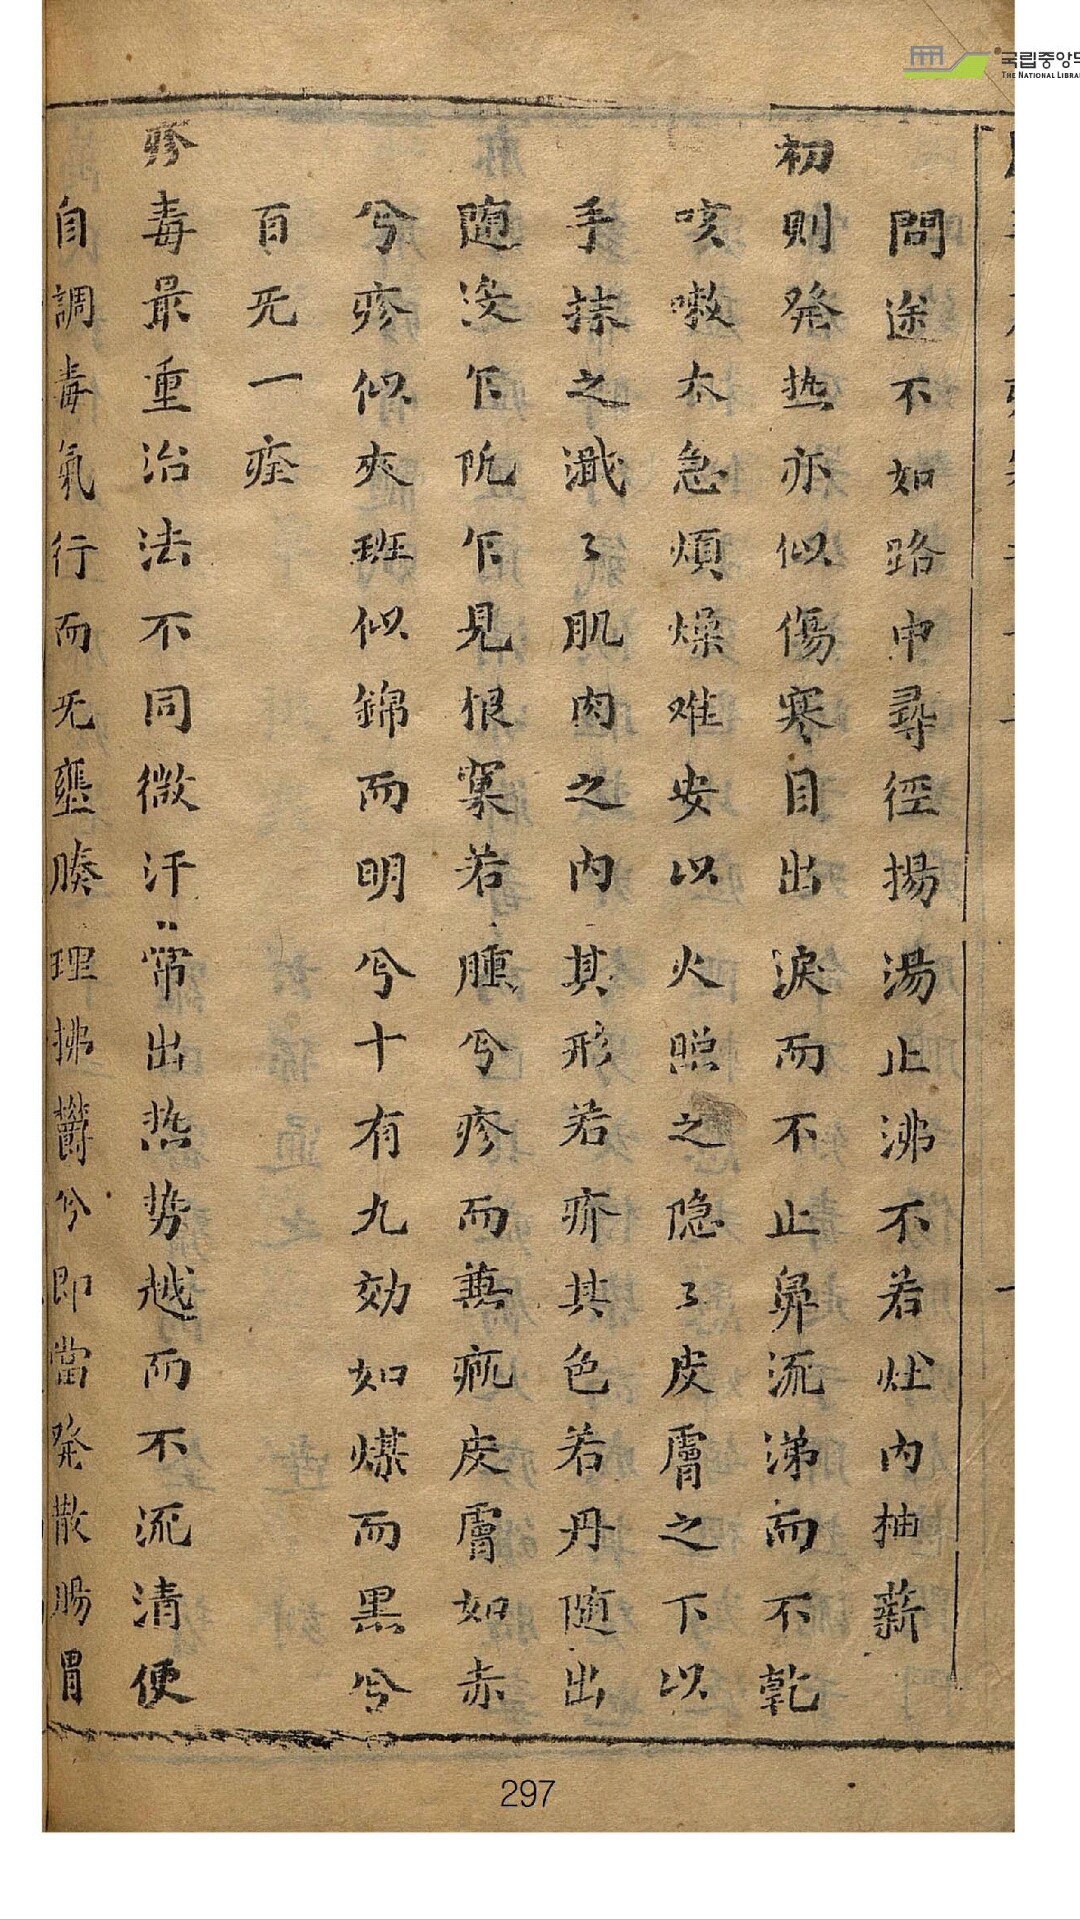 국립중앙도
THE NATIONAL LIBRA
問途不如路中尋徑揚湯止沸不若灶內抽薪
初則発热亦似傷寒目出淚而不止鼻流涕而不乾
咳嗽太急煩燥难安以火照之隐〻皮膚之下以
手抹之㵶〻肌肉之內其形若疥其色若丹随出
随没乍隐乍見根窠若腫兮疹而兼瘋皮膚如赤
兮疹似夾班似錦而明兮十有九効如煤而黒兮
百无一痊
疹毒最重治法不同微汗常出热势越而不流清便
自調毒氣行而旡壅腠理拂欝兮即當発散腸胃
297